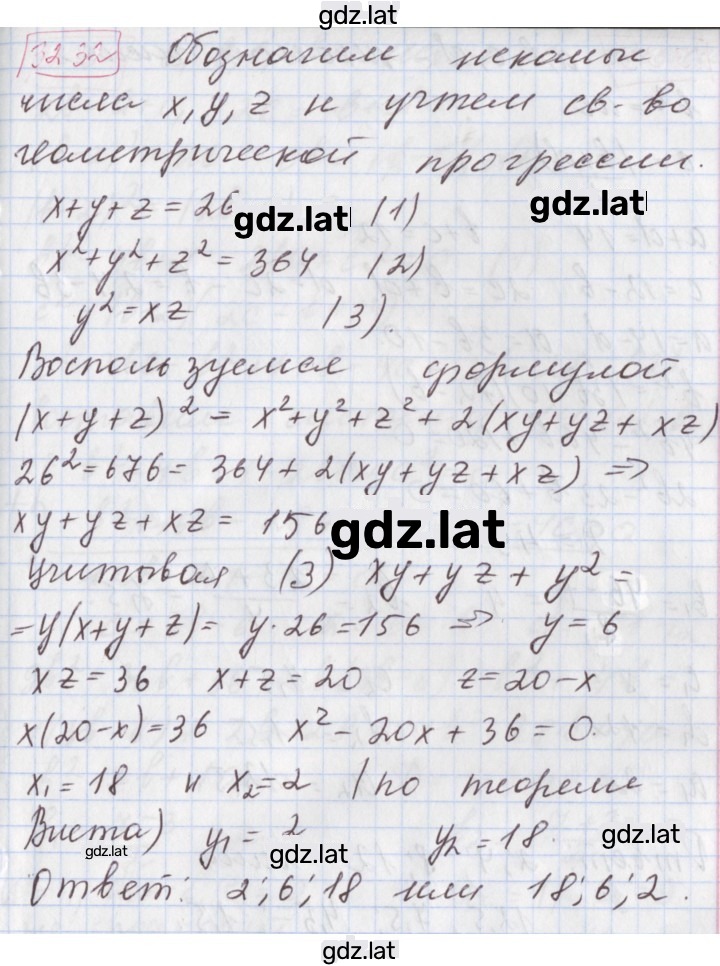 gdz.lat
32.32 Обозначим искомые
числа x, y, z и учтем св-во
геометрической прогрессии.
x+y+z=26 (1)
gdz.lat
gdz.lat
x²+y²+z²=364 (2)
y²=xz (3).
Воспользуемся формулой
(x+y+z)²= x²+y²+z²+2(xy+yz+xz)
26²=676= 364+2(xy+yz+xz) ⇒
xy+yz+xz= 156
gdz.lat
Учитывая (3) xy+yz+y²=
=y(x+y+z)= y·26=156 ⇒ y=6
xz=36 x+z=20 z=20-x
x(20-x)=36 x²-20x+36=0.
x₁=18 и x₂=2 (по теореме
Виета) y₁=2 y₂=18.
gdz.lat
gdz.lat
gdz.lat
Ответ: 2; 6; 18 или 18; 6; 2.
gdz.lat